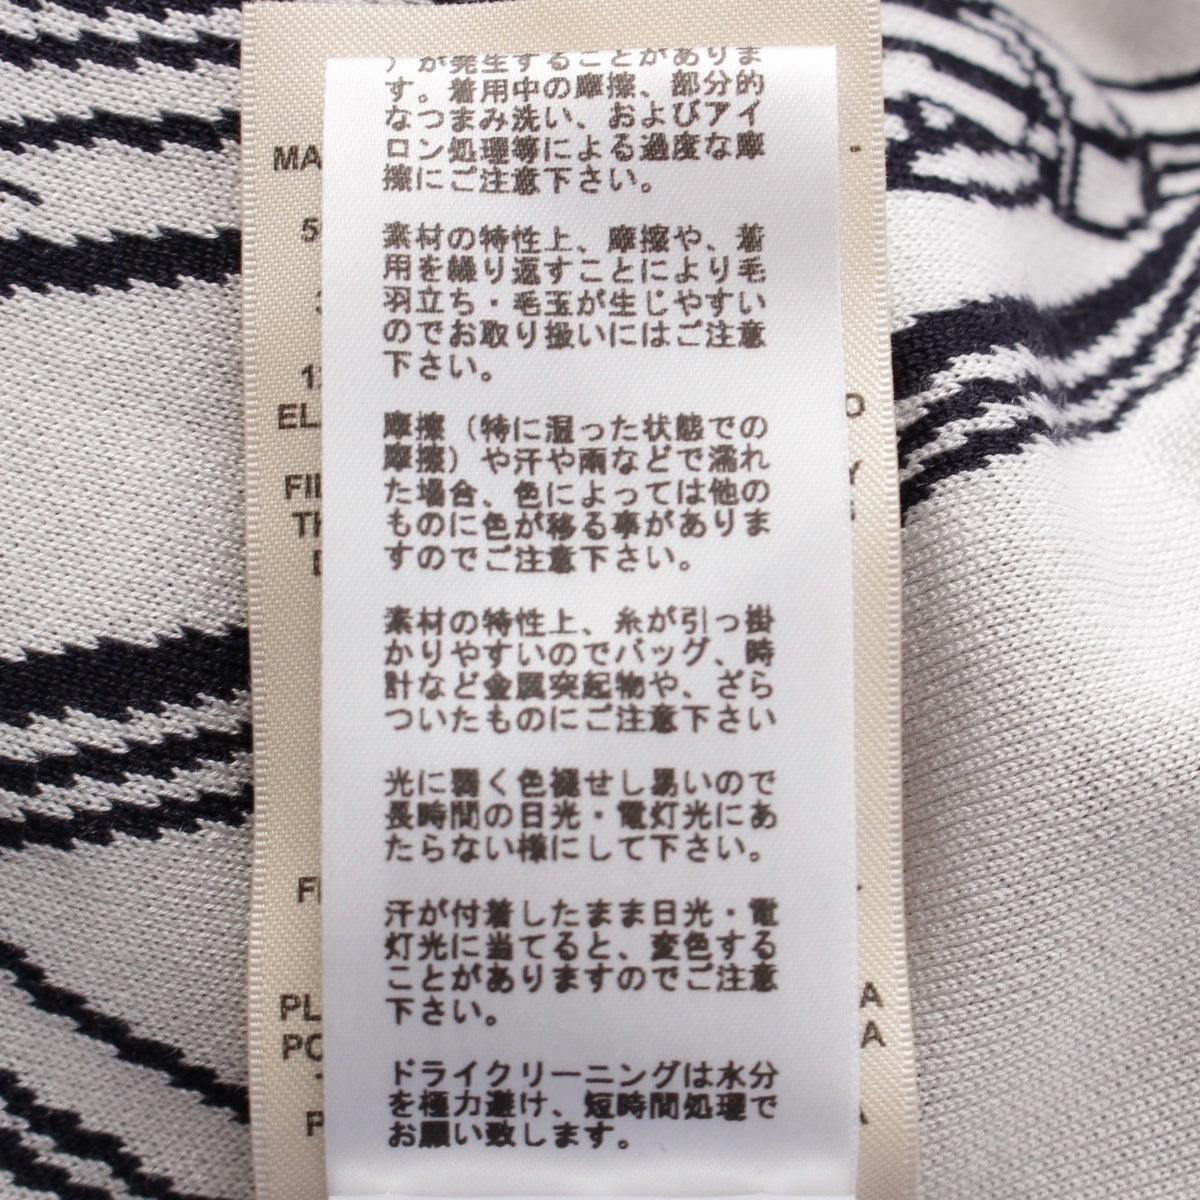 ）が発生することがありま
す。着用中の摩擦、部分的
なつまみ洗い、およびアイ
ロン処理等による過度な摩
擦にご注意下さい。
素材の特性上、摩擦や、着
用を繰り返すことにより毛
羽立ち・毛玉が生じやすい
のでお取り扱いにはご注意
下さい。
摩擦（特に湿った状態での
摩擦）や汗や雨などで濡れ
た場合、色によっては他の
ものに色が移る事がありま
すのでご注意下さい。
素材の特性上、糸が引っ掛
かりやすいのでバッグ、時
計など金属突起物や、ざら
ついたものにご注意下さい
光に弱く色褪せし易いので
長時間の日光・電灯光にあ
たらない様にして下さい。
汗が付着したまま日光・電
灯光に当てると、変色する
ことがありますのでご注意
下さい。
ドライクリーニングは水分
を極力避け、短時間処理で
お願い致します。
MA
5
EL
FI
TH
PL
PO
P